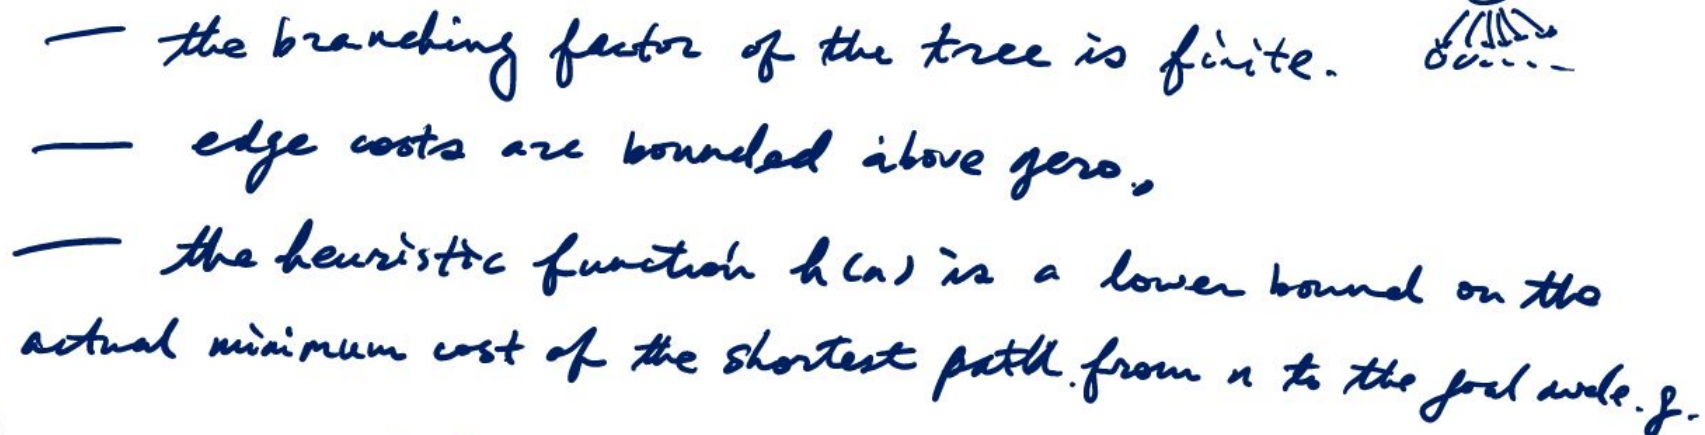 — the branching factor of the tree is finite.
— edge costs are bounded above zero.
— the heuristic function h(n) is a lower bound on the
actual minimum cost of the shortest path from n to the goal node. g.